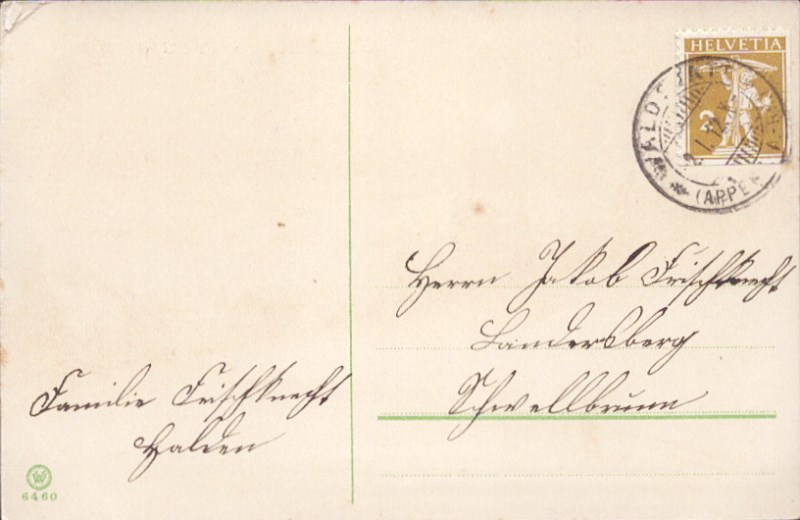 HELVETIA
2
WALDSTATT
(APPENZELL
Herrn Jakob Frischknecht
Landersberg
Schwellbrunn
Familie Frischknecht
Halden
6460